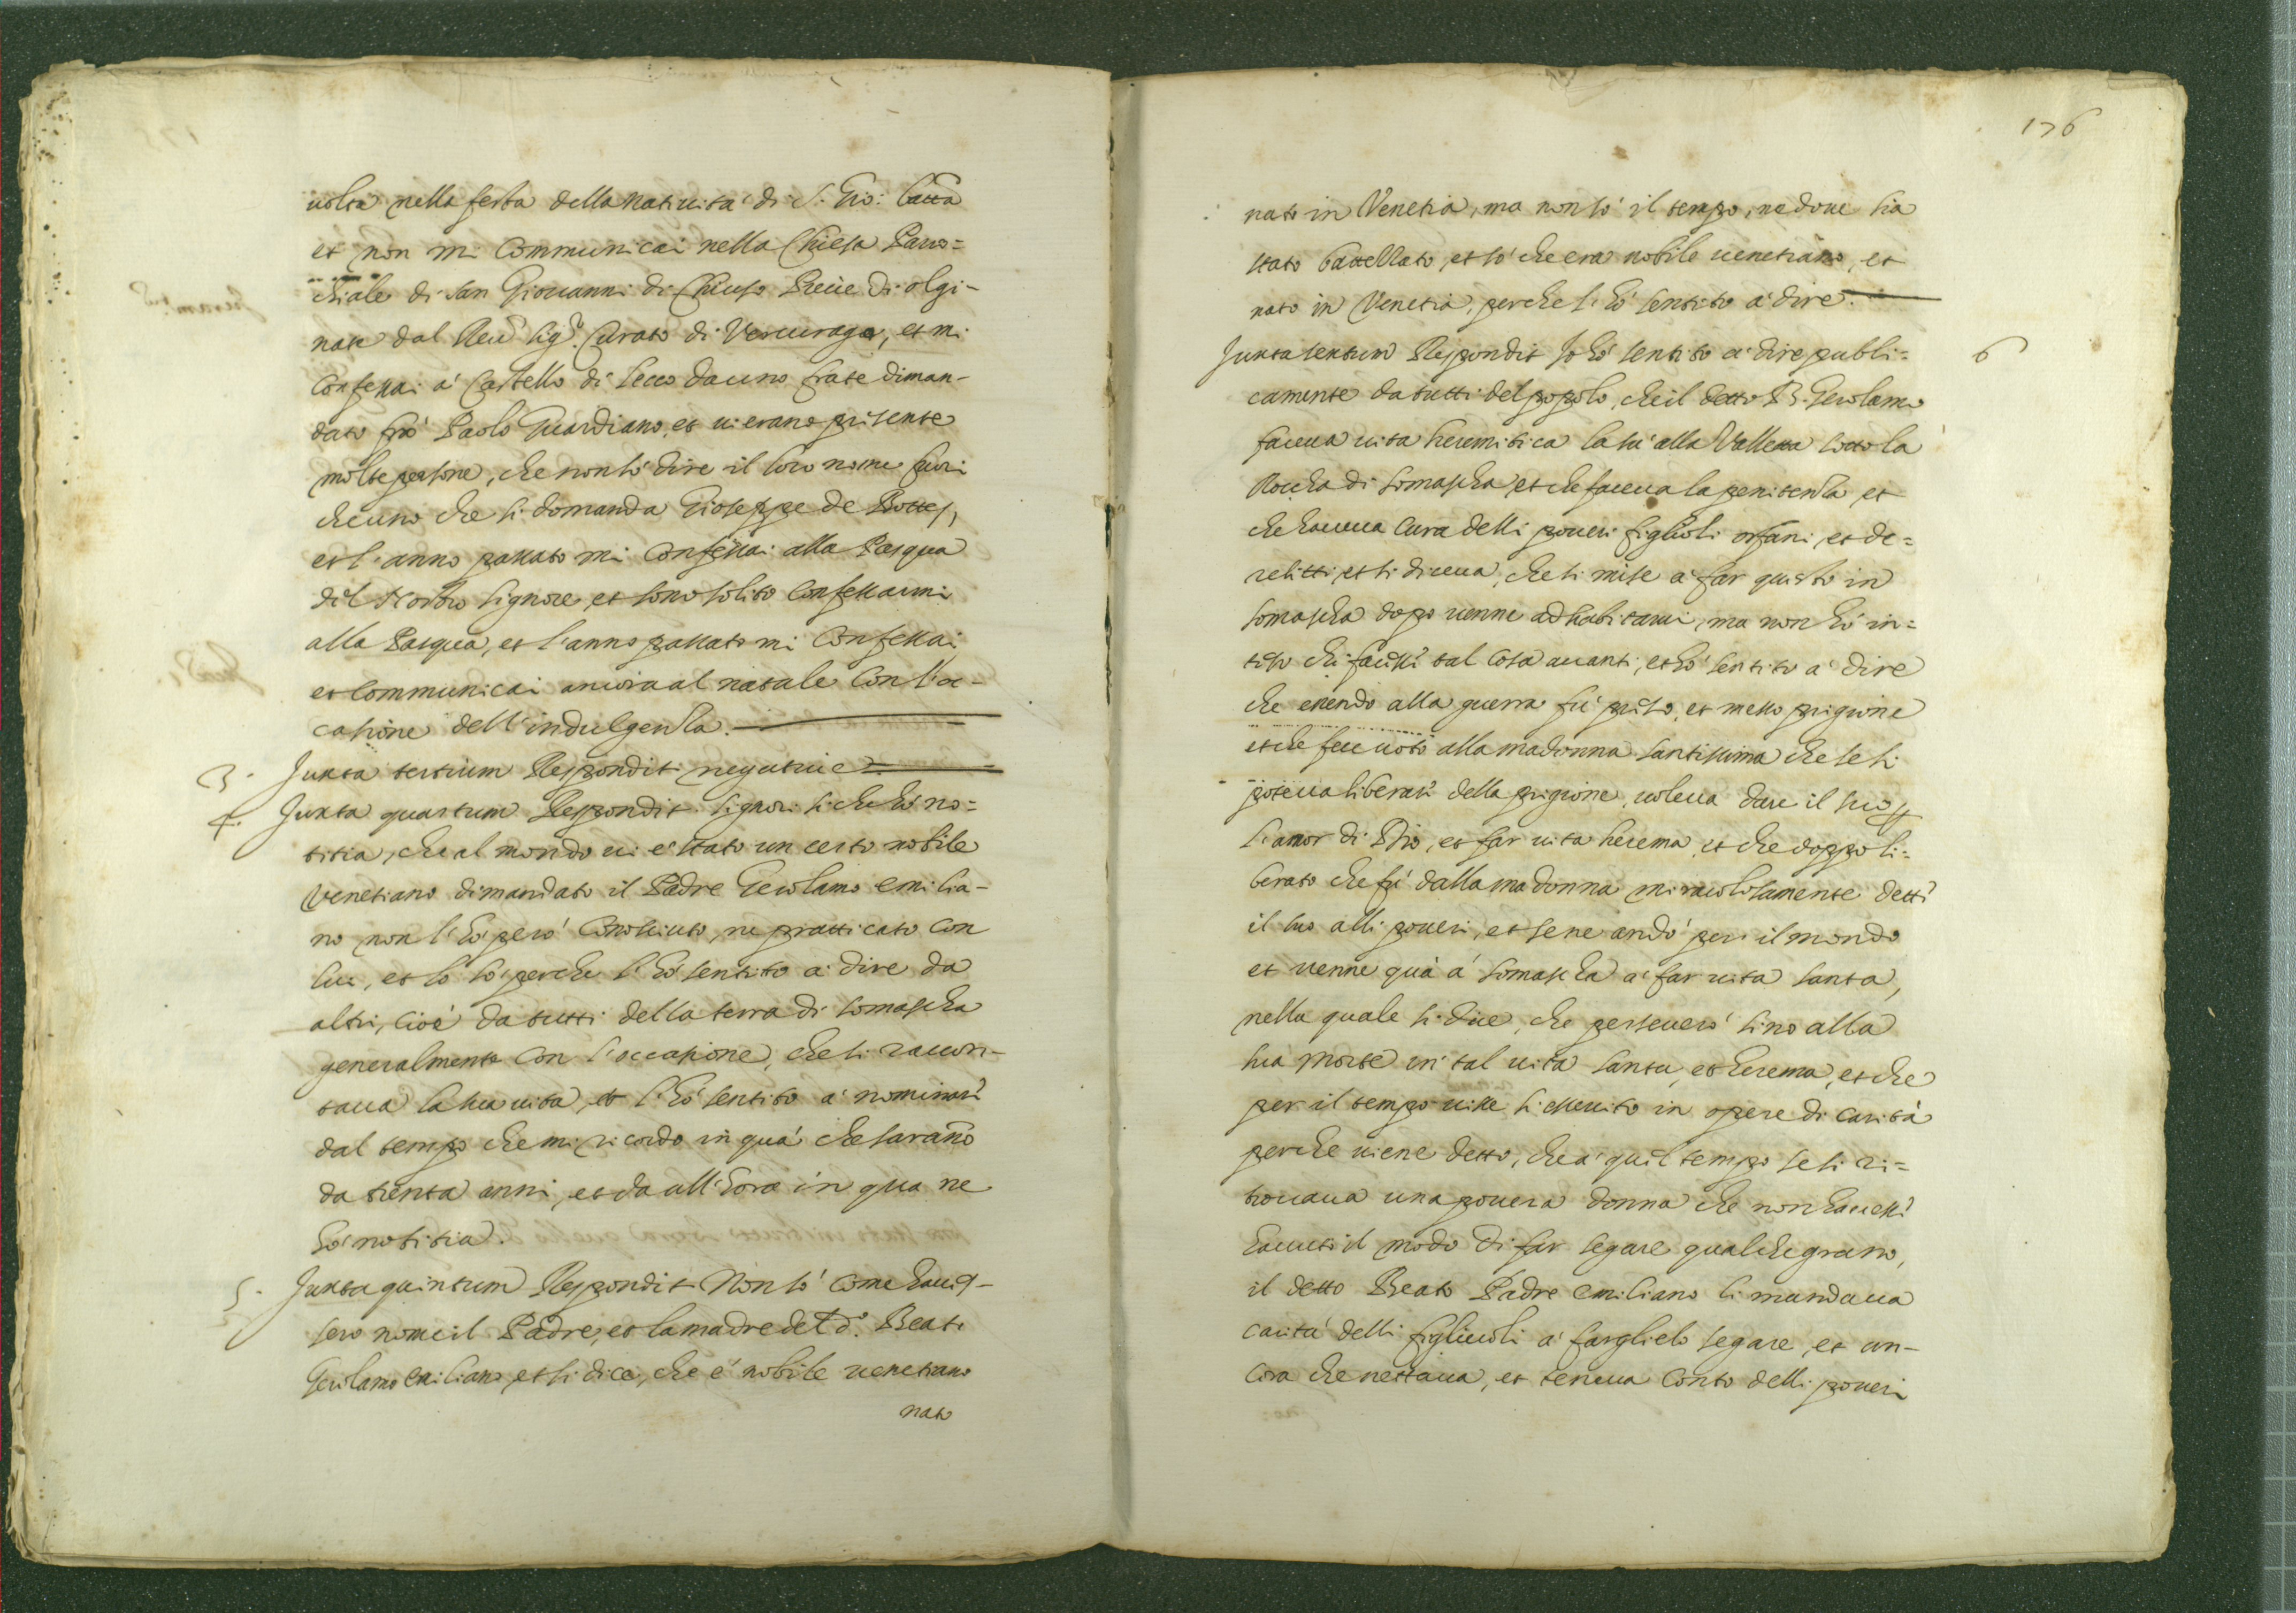 uolta nella festa della natiuita di S. Gio: Batta
et non mi Communicai nella Chiesa Paro=
chiale di san Giouanni di Chiuso Pieue di olgi-
nate dal Reu.do sig.r Curato di Vercurago, et mi
Confessai a' Castello di Lecco da uno frate diman-
dato fra' Paolo Guardiano, et ui erano presente
molte persone, che non so' dire il loro nome fuori
che uno che si domanda Gioseppe de
et l'anno passato mi Confessai alla Pasqua
del Nostro Signore et sono solito Confessarmi
alla Pasqua, et l'anno passato mi Confessai
et Communicai ancora al natale Con l'oc-
casione dell'indulgenza.
3. Juxta tertium Respondit negatiue
4. Juxta quartum Respondit signori si che hó no=
titia, che al mondo ui é stato un certo nobile
Venetiano dimandato il Padre Gerolamo emilia-
no non l'hó peró Conosciuto, ne pratticato con
lui, et lo só perche l'hó sentito a dire da
altri, cioé da tutti della terra di somascha
generalmente con l'occasione, che si raccon-
taua la sua uita, et l'hó sentito á nominare
dal tempo che mi ricordo in quá che saranno
da trenta anni, et da all'hora in qua ne
hó notitia.
5. Juxta quintum Respondit Non só come haues-
sero nome il Padre, et la madre del d.o Beato
Gerolamo emiliano, et si dice, che é nobile uenetiano
nato
176
nato in Venetia, ma non só il tempo, ne doue sia
stato battezzato, et só che era nobile uenetiano, et
nato in Venetia, perche l'hó sentito á dire.
Juxta sextum Respondit Io hó sentito á dire publi= 6
camente da tutti del popolo, che il detto B. Gerolamo
faceua uita heremitica la sú alla Valletta sotto la
Roccha di somascha et che faceua la penitenza et
che haueua cura delli poueri figlioli orfani, et de=
relitti, et si diceua, che si mise á far questo in
somascha dopo uenne ad habitarui, ma non hó in=
teso che facesse tal cosa auanti, et hó sentito á dire
che essendo alla guerra fú preso, et messo prigione
et che fece uoto alla madonna santissima che se si
poteua liberare della prigione, uoleua dare il suo p
l'amor di Dio, et far uita herema, et che doppo li=
berato che fú dalla madonna miracolosamente dette
il suo alli poueri, et se ne andó per il mondo
et uenne quá á somascha á far uita santa,
nella quale si dice, che perseueró sino alla
sua morte in tal uita santa, et herema, et che
per il tempo uisse si essercitó in opere di caritá
perche uiene detto, che á quel tempo se si ri=
trouaua una pouera donna che non hauesse
hauuto il modo di far segare qualche grano,
il detto Beato Padre emiliano li mandaua
caritá delli figliuoli á farglielo segare, et an-
cora che nettaua, et teneua conto delli poueri